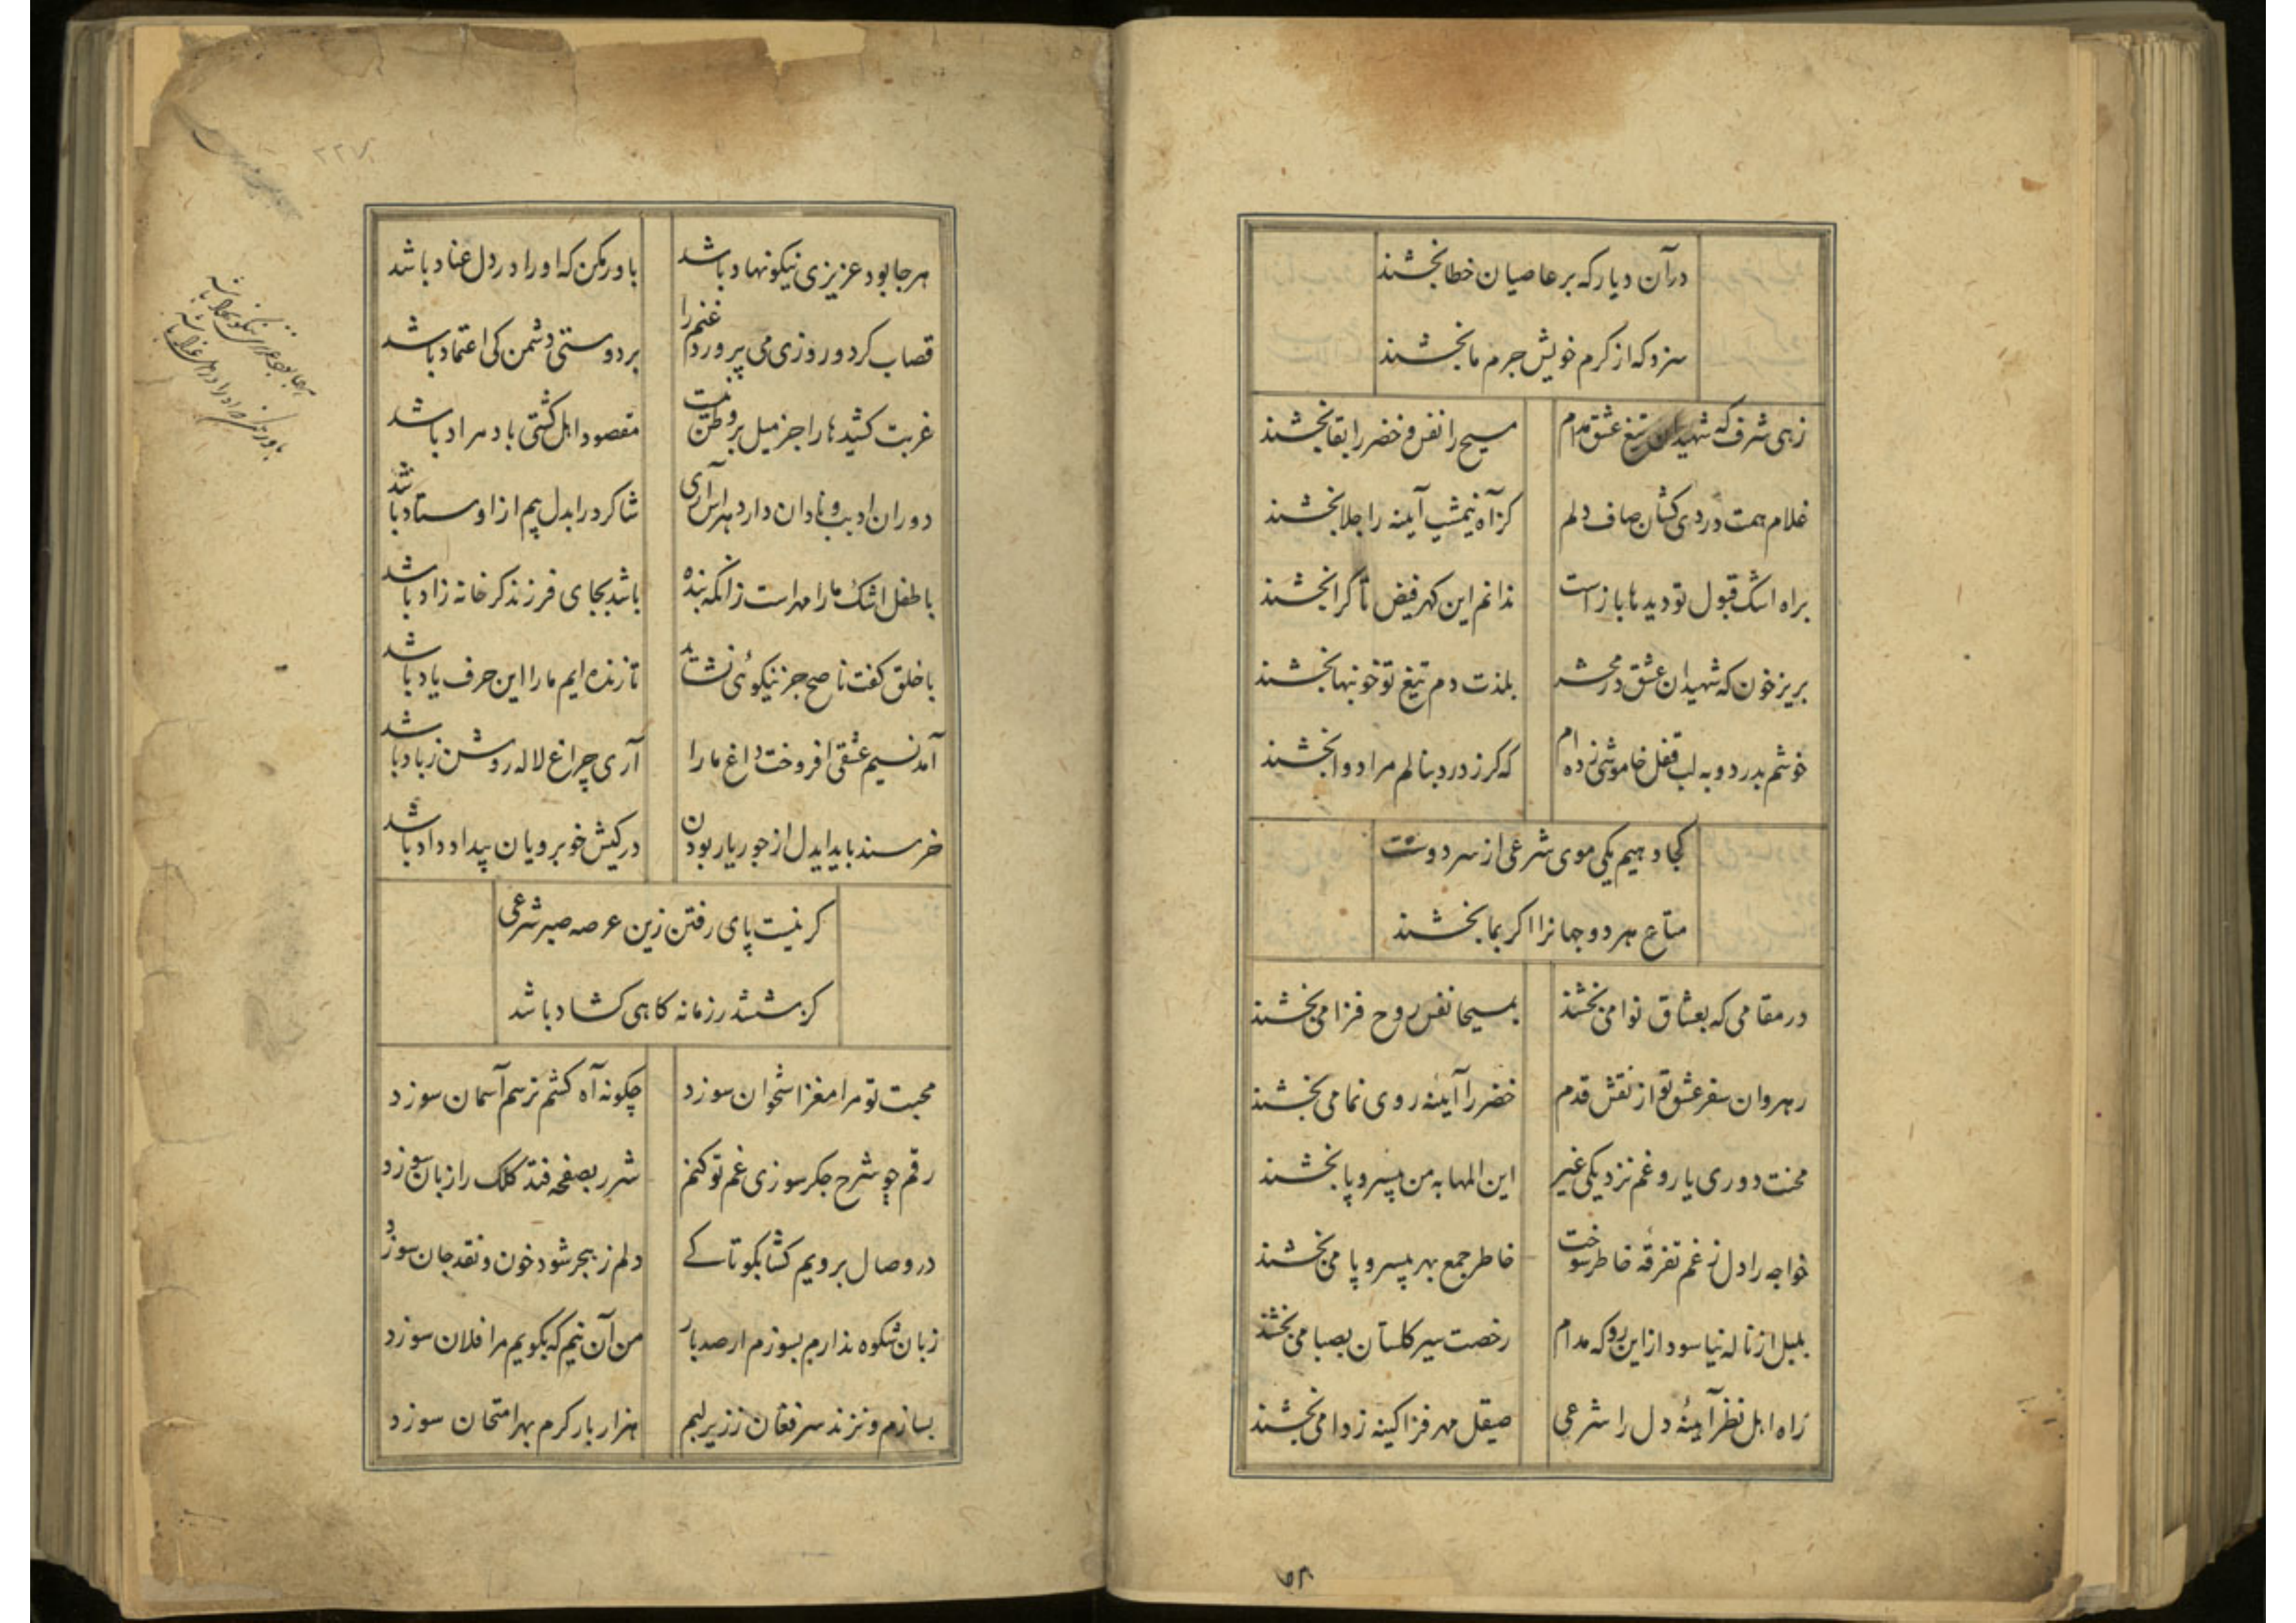 درآن دیار که بر عاصیان خطا بخشند
سزد که از کرم خویش جرم ما بخشند
زهی شرف که شهیدان تیغ عشق مدام
مسیح را نفس و خضر را بقا بخشند
غلام همت دردی کشان صاف دلم
کز آه نیمشب آیینه را جلا بخشند
براه اشک قبول تو دیدها باز است
ندانم این گهر فیض تا کرا بخشند
بریز خون که شهیدان عشق در محشر
بلذت دم تیغ تو خونبها بخشند
خوشم بدرد و به لب قفل خاموشی زده ام
که گر ز درد بنالم مرا دوا بخشند
کجا دهیم یکی موی شرعی از سر دوست
متاع هر دو جهانرا اگر بما بخشند
در مقامی که بعشاق نوا می بخشند
بمسیحا نفس روح فزا می بخشند
رهروان سفر عشق تو از نقش قدم
خضر را آیینه روی نما می بخشند
محنت دوری یار و غم نزدیکی غیر
این المها به من بیسر و پا بخشند
خواجه را دل ز غم تفرقه خاطر سوخت
خاطر جمع بهر بیسر و پا می بخشند
بلبل از ناله نیاسود از این رو که مدام
رخصت سیر گلستان بصبا می بخشند
زاه اهل نظر آیینهٔ دل را شرعی
صیقل مهر فزا کینه زدا می بخشند
۲۲۷
هر جا بود عزیزی نیکونهاد باشد
باور مکن که او را در دل عناد باشد
قصاب کرد و روزی می پرورد غنم را
بر دوستی دشمن کی اعتماد باشد
غربت کشیدها را جز میل بر وطن نیست
مقصود اهل کشتی باد مراد باشد
دوران ادیب و نادان دارد هراس آری
شاگرد را بدل بیم از اوستاد باشد
با طفل اشک ما را مهر است زانکه بنده
باشد بجای فرزند گر خانه زاد باشد
با خلق گفت ناصح جز نیکوئی نشاید
تا زنده ایم ما را این حرف یاد باشد
آمد نسیم عشقی افروخت داغ ما را
آری چراغ لاله روشن ز باد باشد
خرسند باید ایدل از جور یار بودن
در کیش خوبرویان بیداد داد باشد
گر نیست پای رفتن زین عرصه صبر شرعی
کز ششدر زمانه گاهی گشاد باشد
محبت تو مرا مغز استخوان سوزد
چگونه آه کشم ترسم آسمان سوزد
رقم چو شرح جگر سوزی غم تو کنم
شرر بصفحه فتد کلک را زبان سوزد
در وصال برویم گشا بگو تا کے
دلم ز هجر شود خون و نقد جان سوزد
زبان شکوه ندارم بسوزم ار صد بار
من آن نیم که بگویم مرا فلان سوزد
بسازم و نزند سر فغان ز زیر لبم
هزار بار گرم بهر امتحان سوزد
هر جا بود عزیزی نیکو نهاد باشد
باور مکن که او را در دل عناد باشد